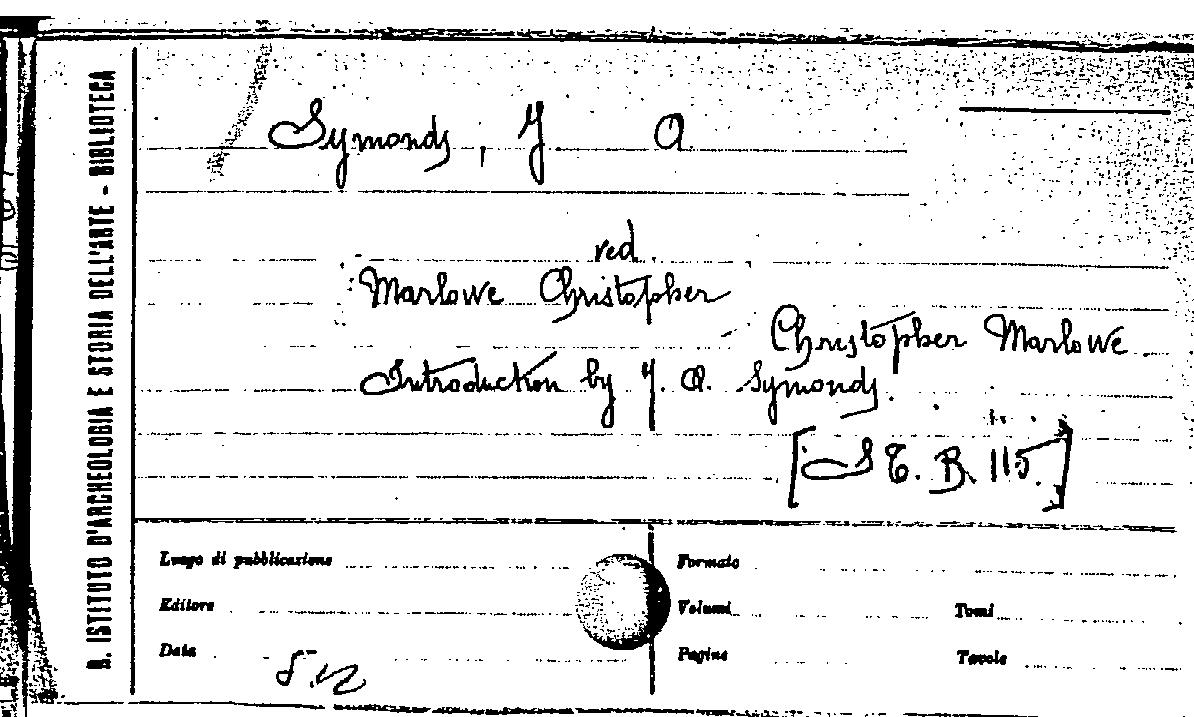 R. ISTITUTO D'ARCHEOLOGIA E STORIA DELL'ARTE - BIBLIOTECA
Symonds, J A
red.
Marlowe Christopher
Christopher Marlowe
Introduction by J. A. Symonds.
[St. B. 115.]
Luogo di pubblicazione
Formato
Editore
Volumi
Tomi
Data
Pagine
Tavole